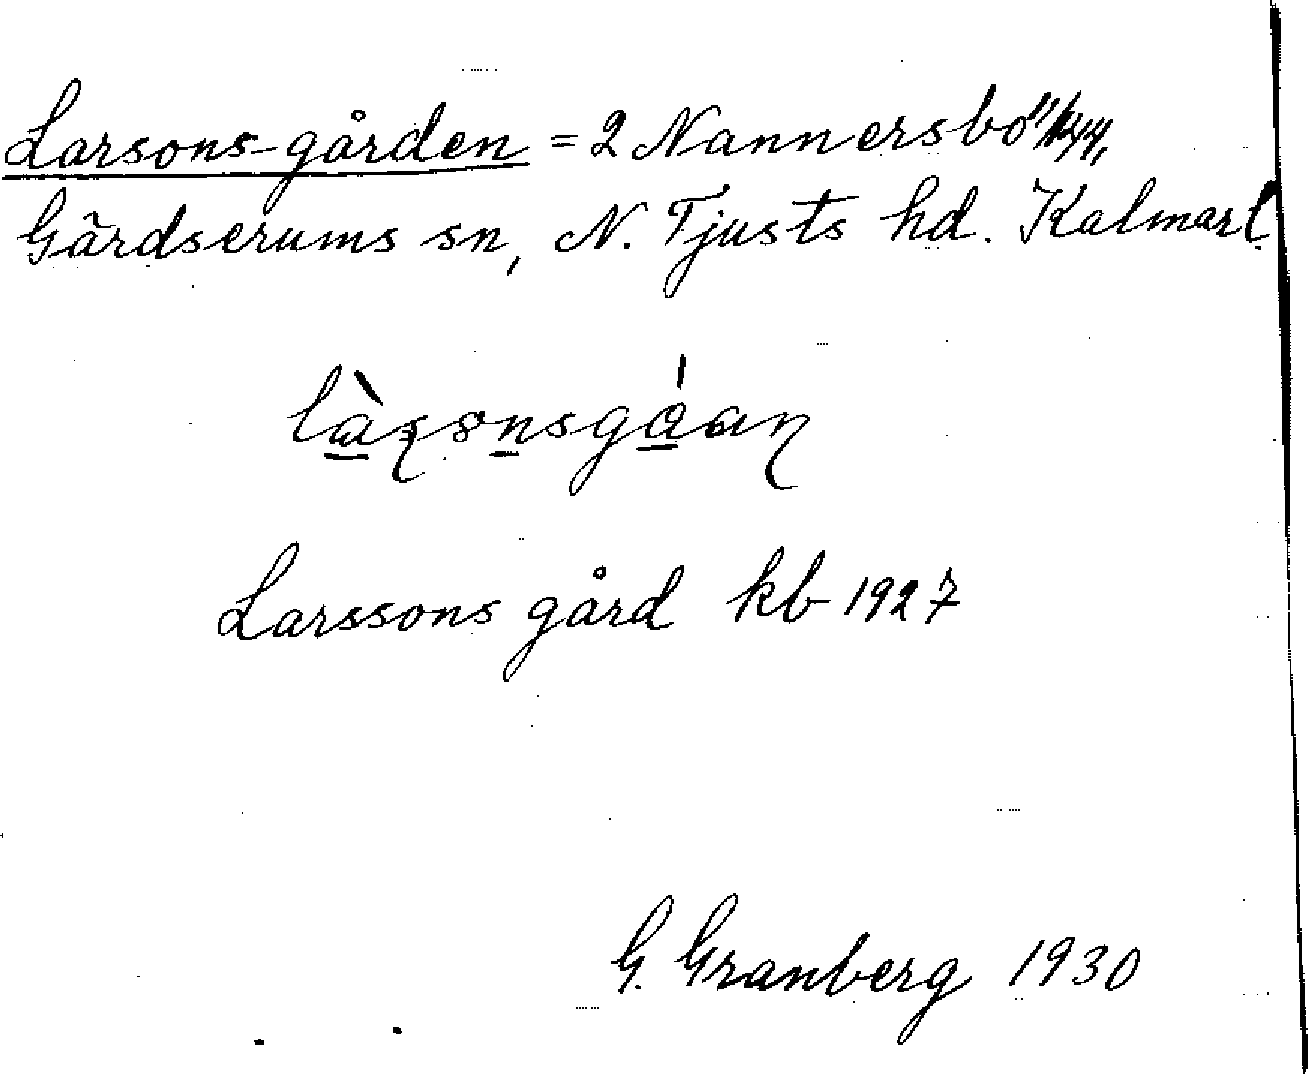 Larsons-gården = 2 Nannersbo
Gärdserums sn, N. Tjusts hd. Kalmar l
Larssons gård kb 1927
G. Granberg 1930